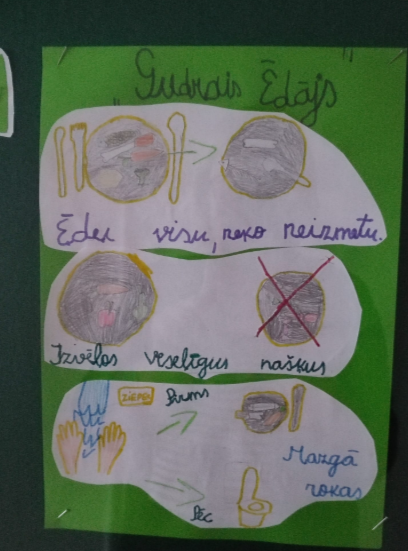 „Gudrais Ēdājs"
Ēdu visu, neko neizmetu.
Izvēlos veselīgus našķus
ziepes Pirms
Mazgā
rokas
Pēc